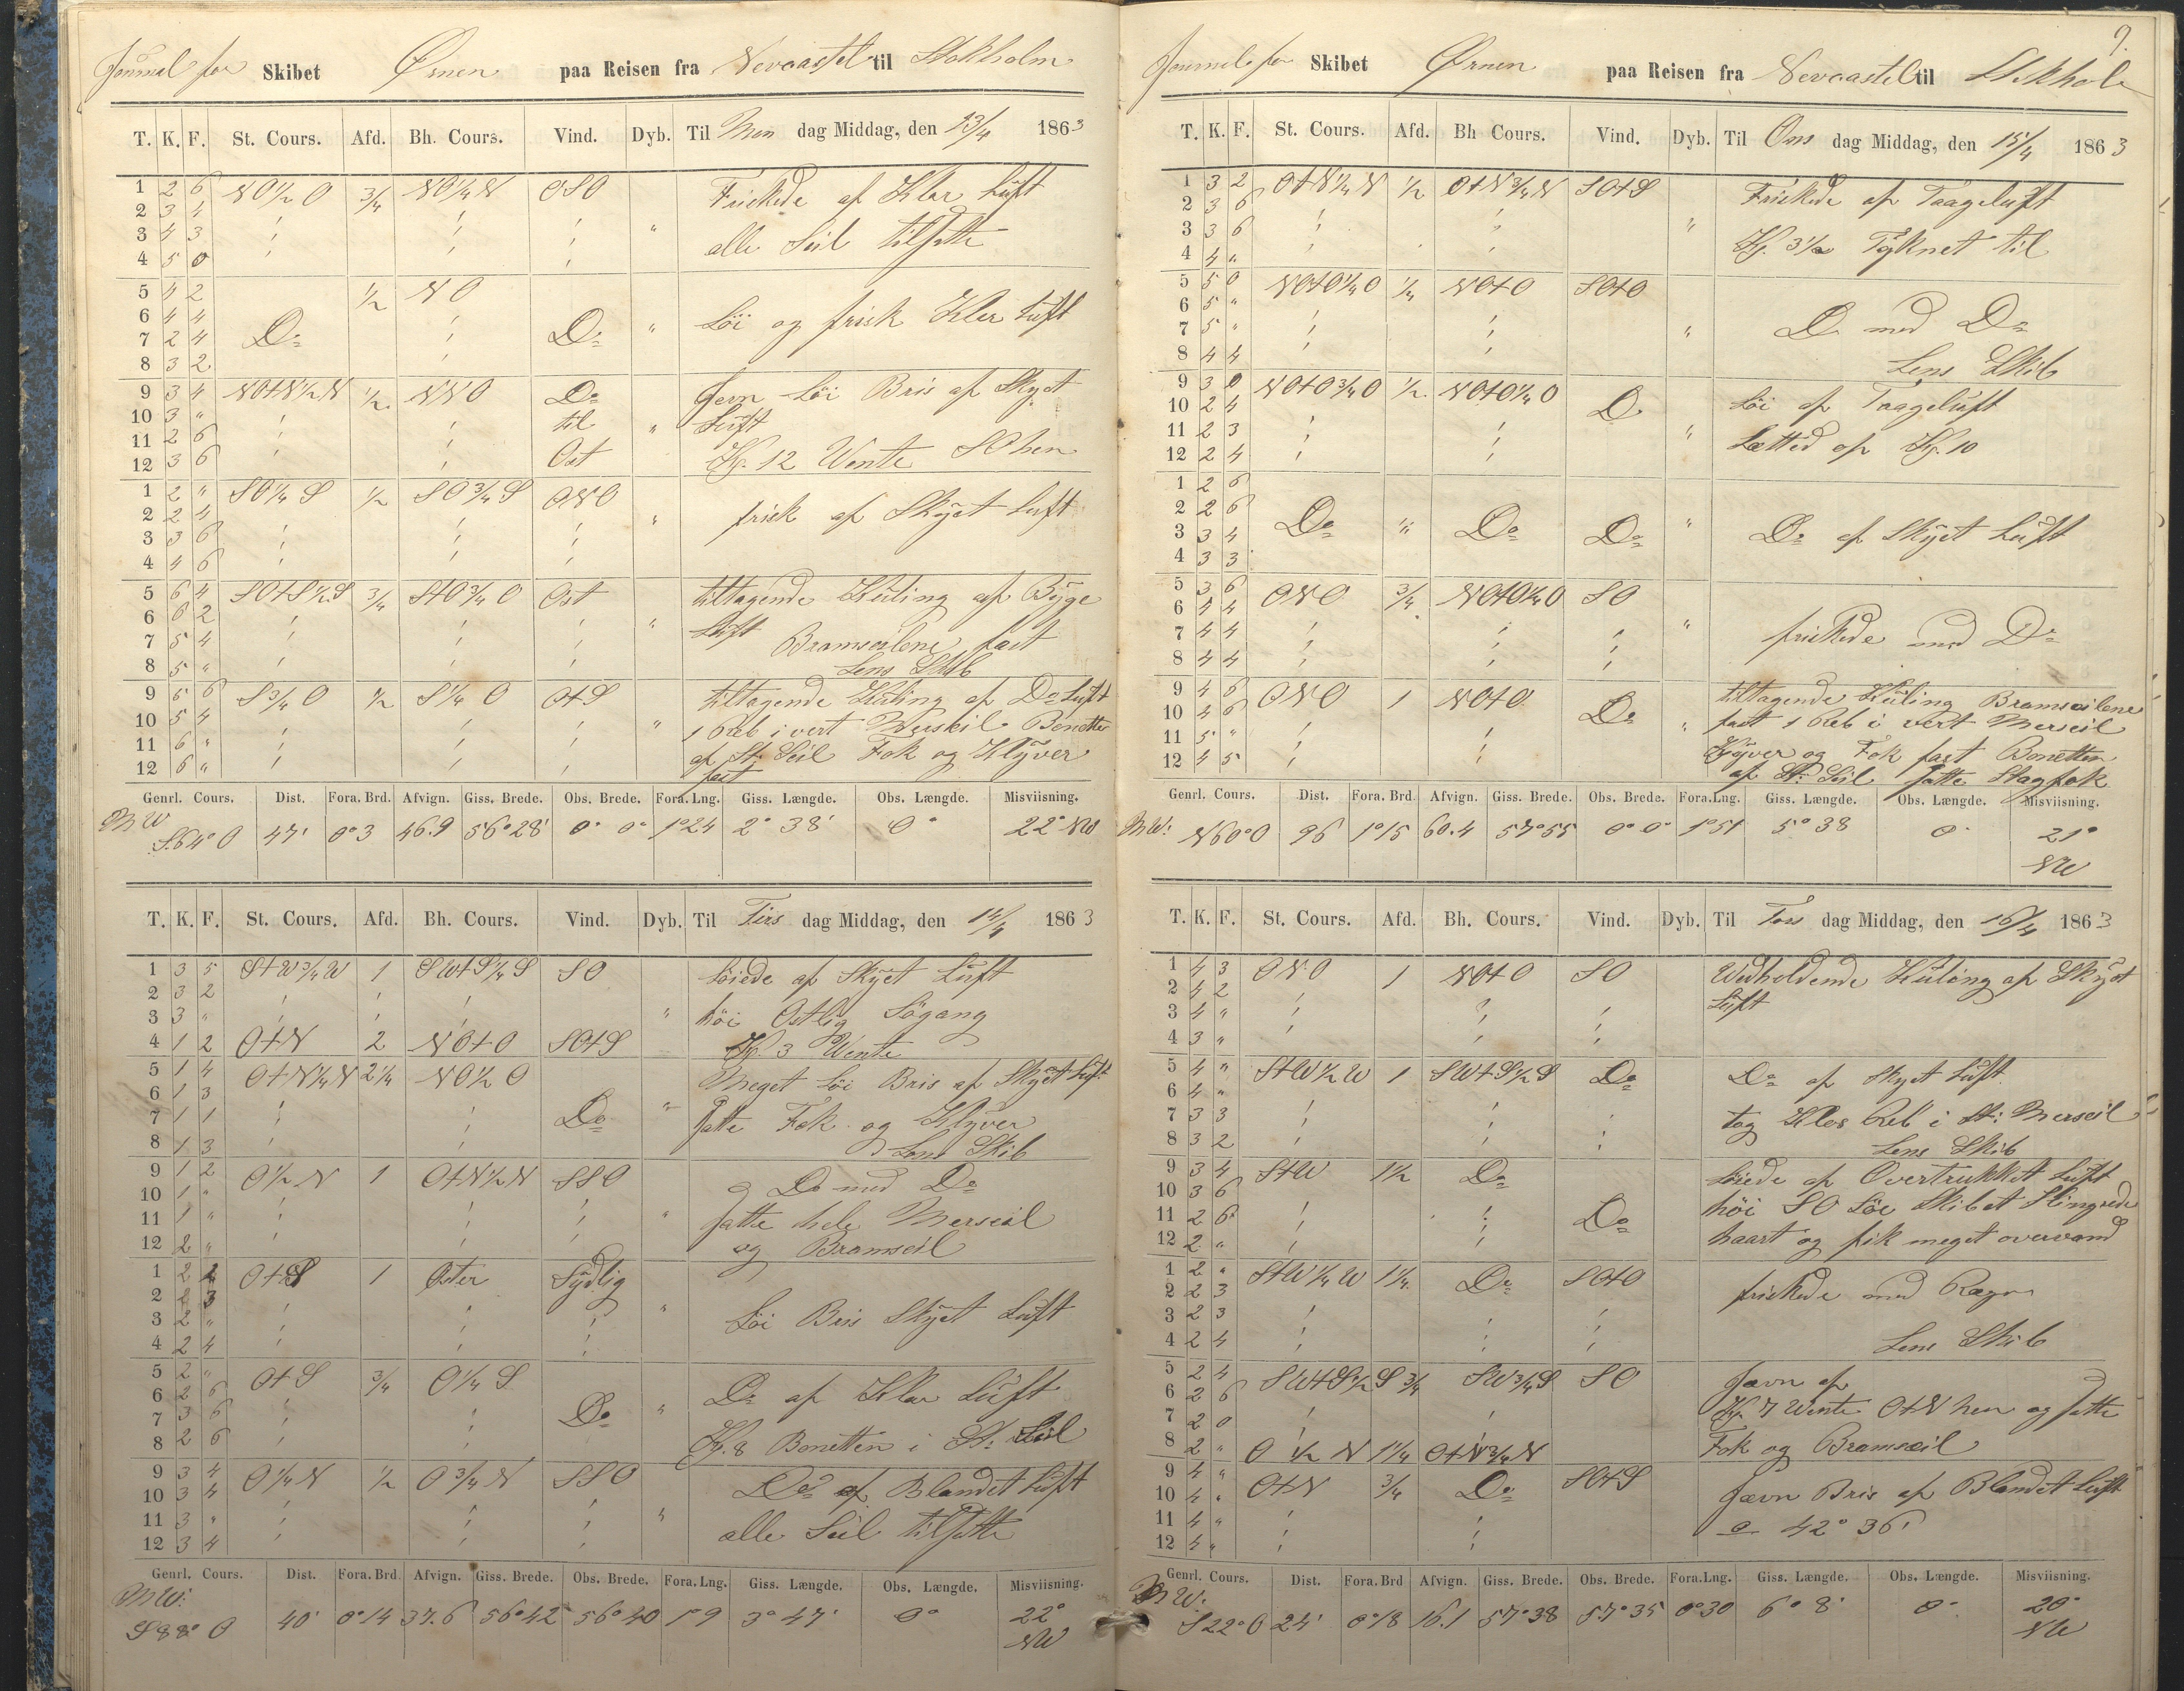 Journal for Skibet Ørnen paa Reisen fra Nevcastel til Stokholm
T. K. F. St. Cours. Afd. Bh. Cours. Vind. Dyb. Til Man dag Middag, den 13/4 1863
1 2 6 NO1/2 O 3/4 NO1/4 N OSO Friskede af Klar Luft
2 3 4
3 4 3 " alle Seil tilsatte
4 5 0
5 4 2 1/2 NO
6 4 4 Løi og frisk Klar Luft
7 2 4 Do Do "
8 3 2
9 3 4 NOtN1/2N 1/2 NNO Do Jevn Løi Bris af Skyet
10 3 " til " Luft
11 2 6
12 3 6 Ost Kp. 12 Wente SO hen
1 2 " SO1/4 S 1/2 SO3/4 S ONO
2 2 4 " frisk af Skyet Luft
3 3 6
4 4 6
5 6 4 SOtS1/2S 3/4 StO3/4 O Ost tiltagende Kuling af Byge
6 6 2 " Luft
7 5 4 Bramseilene fast
8 5 " Lens Skib
9 5 6 S3/4 O 1/2 S1/4 O OtS tiltagende Kuling af Do Luft
10 5 4 " 1 Reb i vert Merseil Bonetten
11 6 " af St: Seil Fok og Klyver
12 6 " fast
Genrl. Cours. Dist. Fora. Brd. Afvign. Giss. Brede. Obs. Brede. Fora. Lng. Giss. Længde. Obs. Længde. Misviisning.
MW S.64° O 47' 0°3 46.9 56°28' 0° 0° 1°24 2° 38' 0° 22° NW
T. K. F. St. Cours. Afd. Bh. Cours. Vind. Dyb. Til Tirs dag Middag, den 14/4 1863
1 3 5 StW3/4 W 1 SWtS1/4 S SO Løiede af Skyet Luft
2 3 2
3 3 " " høi Ostlig Søgang
4 1 2 OtN 2 NOtO SOtS Kp. 3 Wente
5 1 4 OtN1/4N 2 1/4 NO1/2 O Meget Løi Bris af Skyet Luft
6 1 3 "
7 1 1 Do satte Fok og Klyver
8 1 3 Lens Skib
9 1 2 O1/2 N 1 OtN1/2N SSO Do med Do
10 1 "
11 1 " " satte hele Merseil
12 2 " og Bramseil
1 2 2 OtS 1 Oster Sydlig
2 2 3 "
3 2 " Løi Bris Skyet Luft
4 2 4
5 2 " OtS 3/4 O1/4 S Do af Klar Luft
6 2 6 "
7 3 6 Do
8 2 6 Kp. 8 Bonetten i St: Seil
9 3 4 O1/4 N 1/2 O3/4 N SSO Do af Blandet Luft
10 3 4
11 3 " " alle Seil tilsatte
12 3 4
Genrl. Cours. Dist. Fora. Brd. Afvign. Giss. Brede. Obs. Brede. Fora. Lng. Giss. Længde. Obs. Længde. Misviisning.
MW: S88° O 40' 0°14 37.6 56°42 56°40 1°9 3° 47' 0° 22° NW
9.
Journal for Skibet Ørnen paa Reisen fra Nevcastel til Stokhol
T. K. F. St. Cours. Afd. Bh Cours. Vind. Dyb. Til Ons dag Middag, den 15/4 1863
1 3 2 OtN1/4 N 1/2 OtN3/4N SOtS Friskede af Taageluft
2 3 6
3 3 6 " Kp. 3 1/2 Tyknet til
4 4 "
5 5 0 NOtO1/4 O 1/4 NOtO SOtO
6 5 "
7 5 " " Do med Do
8 4 4 Lens Skib
9 3 0 NOtO3/4 O 1/2 NOtO1/4 O Løi af Taageluft
10 2 4 Do
11 2 3 " Lætted op Kp. 10
12 2 4
1 2 6
2 2 6 Do " Do Do " Do af Skyet Luft
3 3 4
4 3 3
5 3 6 ONO 3/4 NOtO1/4O SO
6 4 4 "
7 4 4 friskede med Do
8 4 4
9 4 6 ONO 1 NOtO tiltagende Kuling Bramseilene
10 4 6 Do " fast 1 Reb i vert Merseil
11 5 " Klyver og Fok fast Bonetten
12 4 5 af St: Seil satte Stagfok
Genrl. Cours. Dist. Fora. Brd Afvign. Giss. Brede. Obs. Brede. Fora.Lng. Giss. Længde. Obs. Længde. Misviisning.
MW: N60°O 96 1°15 60.4 57°55 0° 0° 1°51 5° 38 0° 21° NW
T. K. F. St. Cours. Afd. Bh. Cours. Vind. Dyb. Til Tors dag Middag, den 16/4 1863
1 4 3 ONO 1 NOtO SO Wedholdende Kuling af Skyet
2 4 2 Luft
3 4 "
4 3 "
5 4 " StW1/2 W 1 SWtS1/2 S Do Do af Skyet Luft
6 4 "
7 3 3 tog Klos Reb i St: Merseil
8 3 2 Lens Skib
9 3 4 StW 1 1/2 Do Løiede af Overtrukket Luft
10 3 6 høi SO Søe Skibet Slingrede
11 2 6 Do
12 2 " haart og fik meget overvand
1 2 " StW1/4 W 1 1/4 Do SOtO
2 2 3 friskede med Regn
3 2 3
4 2 4 Lens Skib
5 2 4 SWtS1/2 S 3/4 SW3/4S SO Jævn af Do
6 2 6
7 2 0 Kp. 7 Wente OtN hen og satte
8 2 " O 1/2 N 1 1/4 OtN3/4N Fok og Bramseil
9 4 " OtN 3/4 Do SOtS
10 4 " Jævn Bris af Blandet Luft
11 4 " 42° 36'
12 4 "
Genrl. Cours. Dist. Fora. Brd Afvign. Giss. Brede. Obs. Brede. Fora.Lng. Giss. Længde. Obs. Længde. Misviisning.
MW: S22°O 24' 0°18 16.1 57°38 57°35 0°30 6° 8' 0° 20° NW